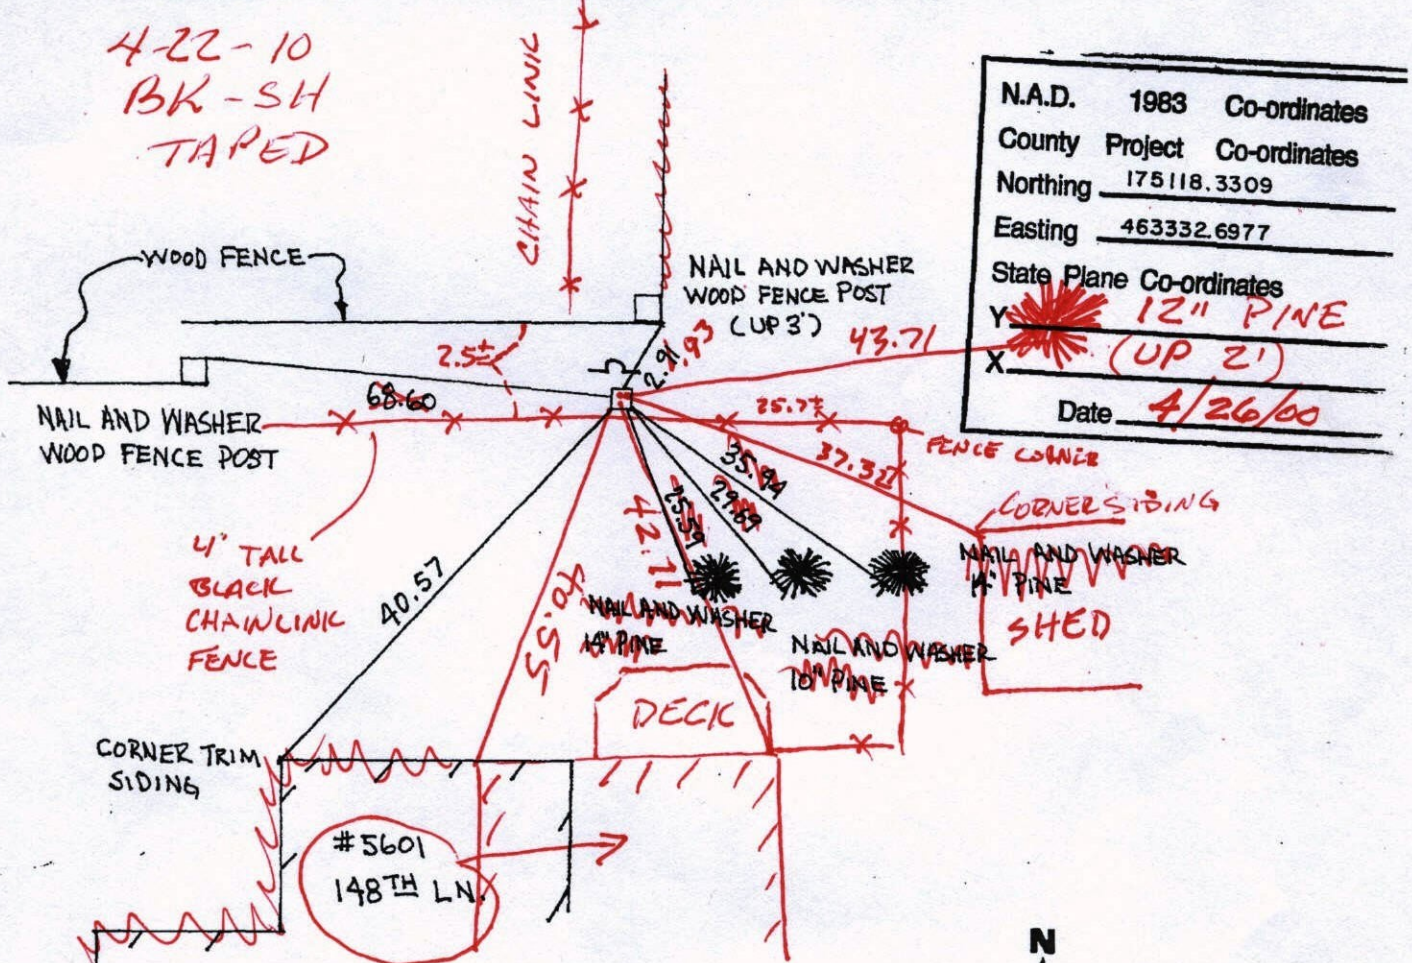 4-22-10
BK-SH
TAPED
CHAIN LINK
N.A.D. 1983 Co-ordinates
County Project Co-ordinates
Northing 175118.3309
Easting 463332.6977
State Plane Co-ordinates
Y
12" PINE
X
(UP 2')
Date 4/26/00
WOOD FENCE
NAIL AND WASHER
WOOD FENCE POST
(UP 3')
2.5±
2.91
.93
43.71
68.60
25.7±
NAIL AND WASHER
WOOD FENCE POST
FENCE CORNER
35.94
37.32
29.69
25.59
42.71
CORNER SIDING
4' TALL
BLACK
CHAINLINK
FENCE
40.57
40.55
NAIL AND WASHER
14" PINE
NAIL AND WASHER
14" PINE
NAIL AND WASHER
10" PINE
SHED
DECK
CORNER TRIM
SIDING
#5601
148TH LN.
N